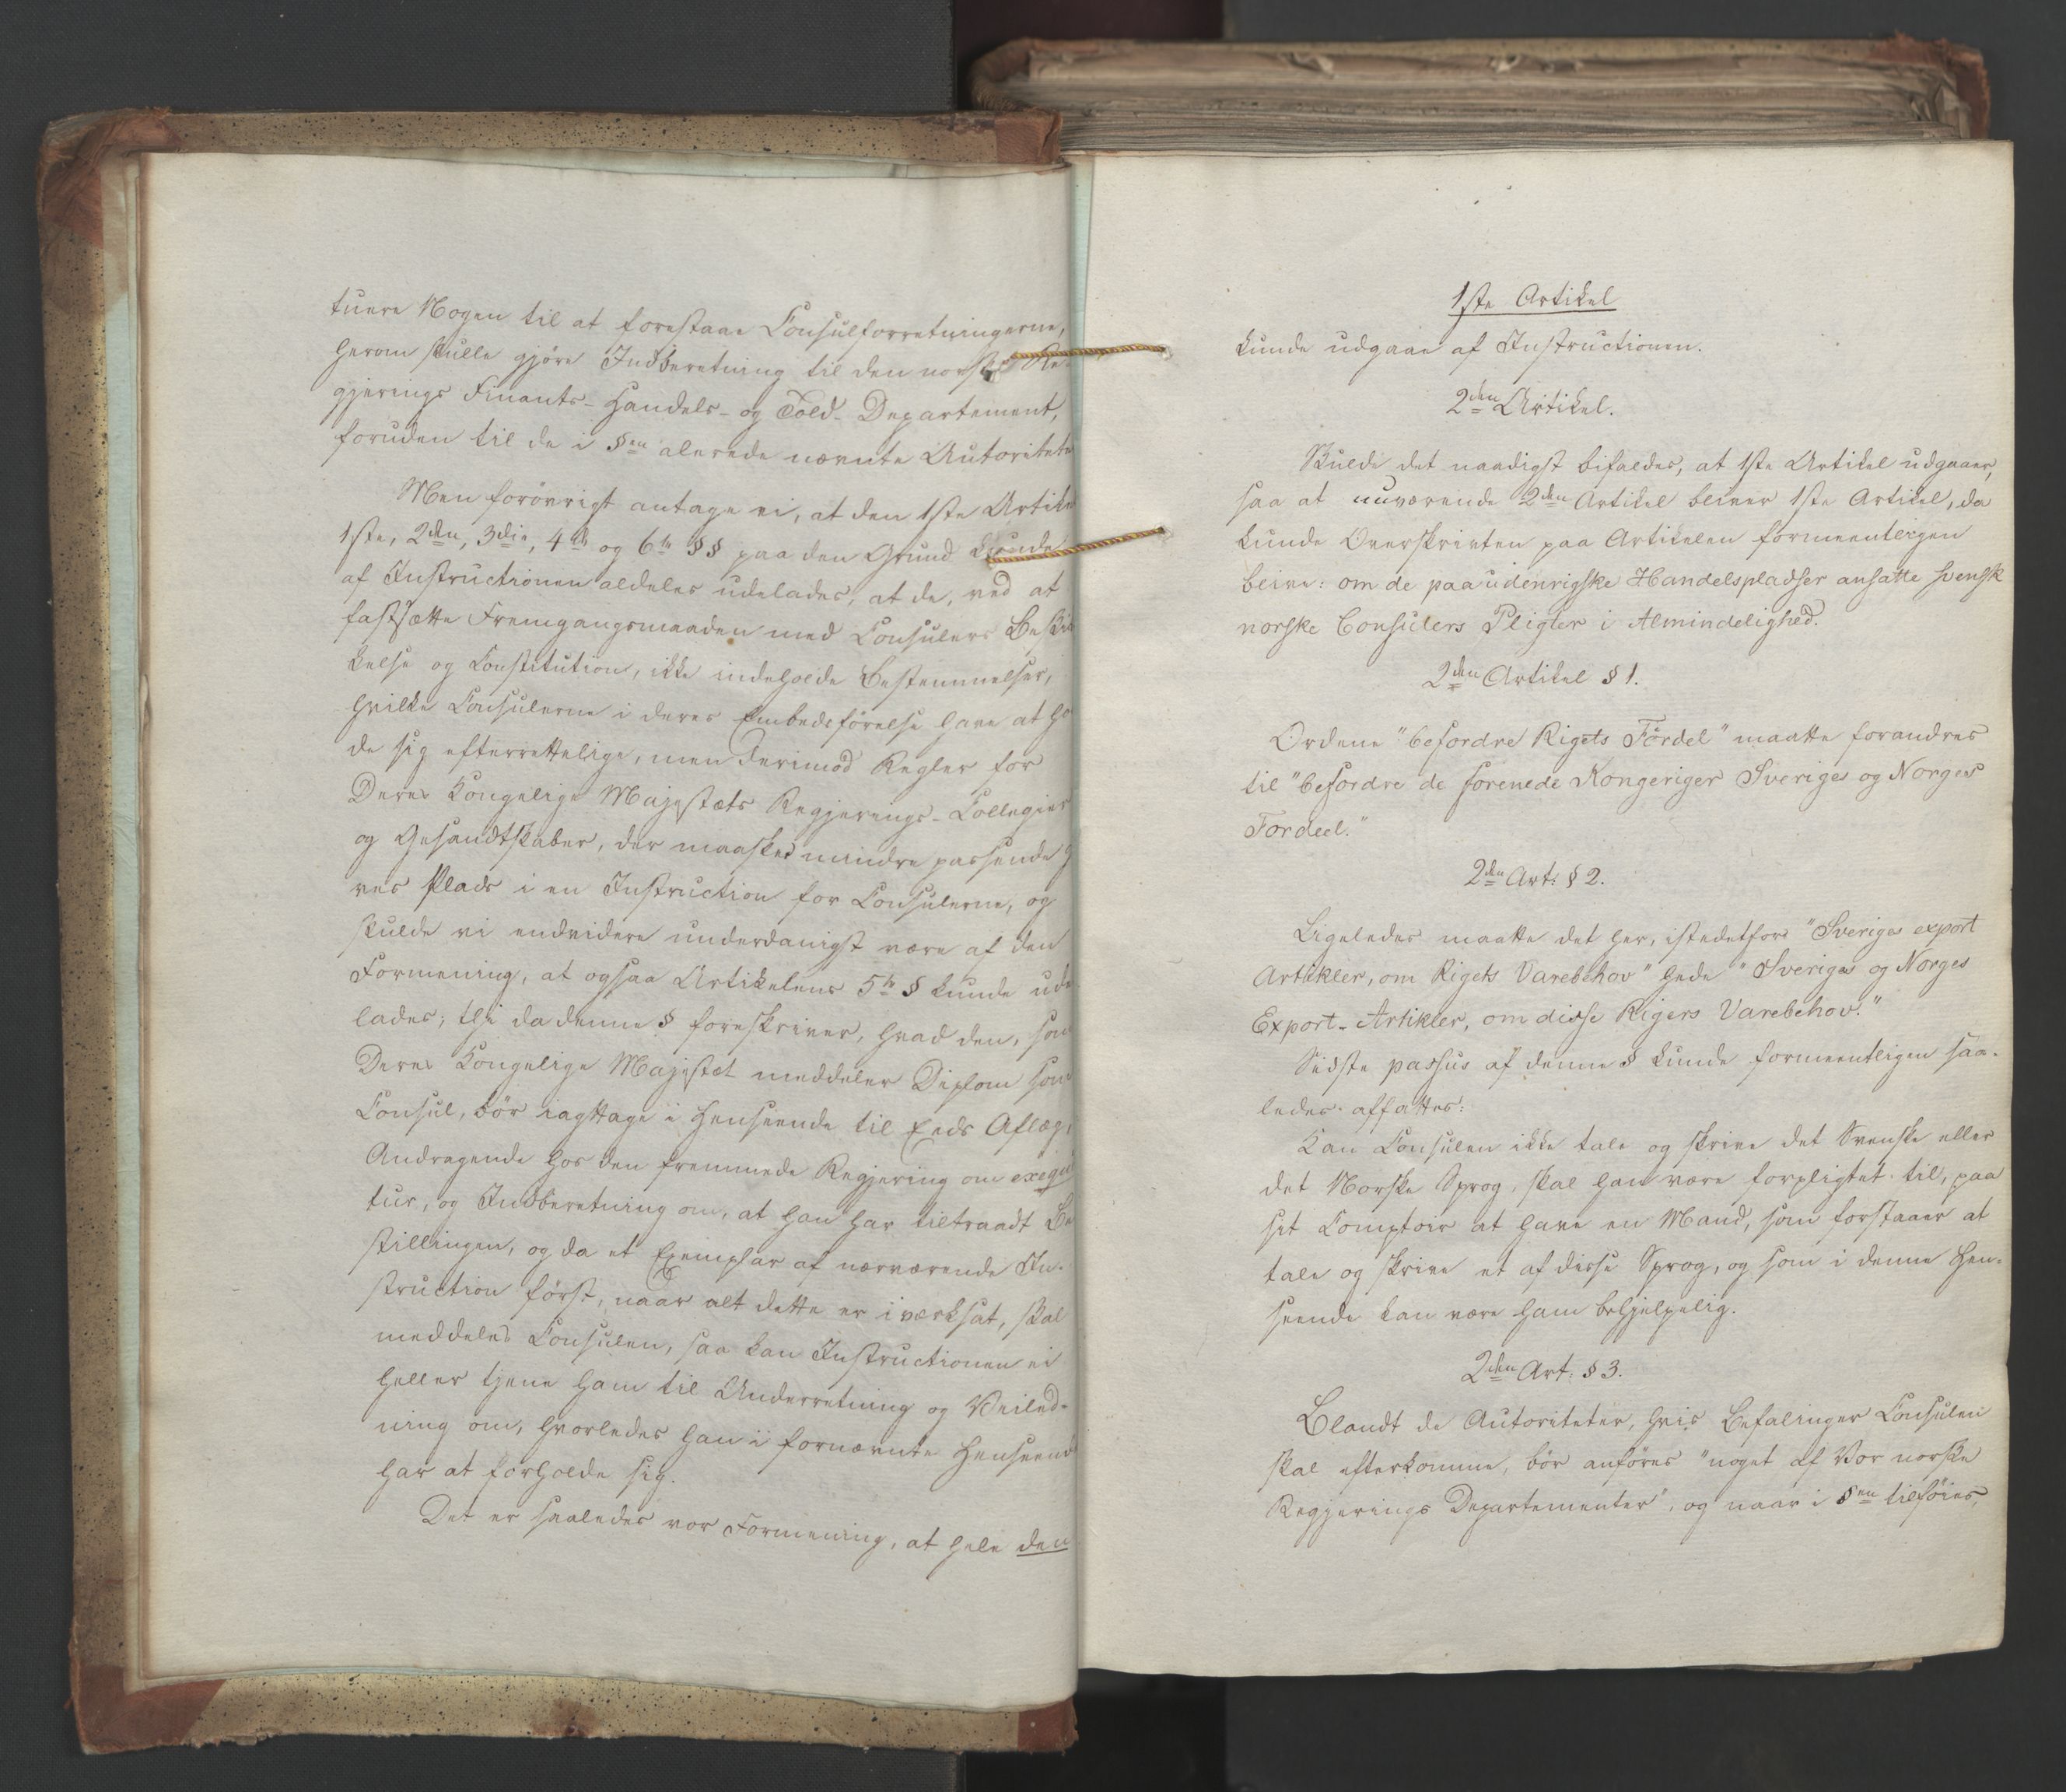 tuere Nogen til at forestaae Consulforretningerne,
herom skulle gjöre Indberetning til den norske Re-
gjerings Finants- Handels- og Told- Departement,
foruden til de i §en alerede nævnte Autoritete
Men forövrigt antage vi, at den 1ste Artike
1ste, 2den, 3die, 4de og 6te §§ paa den Grund kunde
af Instructionen aldeles udelades, at de, ved at
fastsætte Fremgangsmaaden med Consulers Beskik
kelse og Constitution, ikke indeholde Bestemmelser,
hvilke Consulerne i deres Embedsförelse have at hol
de sig efterrettelige, men derimod Regler for
Deres Kongelige Majestæts Regjerings- Collegier
og Gesandtskaber, der maaskee mindre passende g
ves Plads i en Instruction for Consulerne, og
skulde vi endvidere underdanigst være af den
Formening, at ogsaa Artikelens 5te § kunde ude
lades; thi da denne § foreskriver, hvad den, som
Deres Kongelige Majestæt meddeler Diplom som
Consul, bör iagttage i Henseende til Eeds Aflæg,
Andragende hos den fremmede Regjering om exequa
tur, og Indberetning om, at han har tiltraadt Be
stillingen, og da et Exemplar af nærværende In-
struction först, naar alt dette er iværksat, skal
meddeles Consulen, saa kan Instructionen ei
heller tjene ham til Underretning og Veiled-
ning om, hvorledes han i fornævnte Henseend
har at forholde sig.
Det er saaledes vor Formening, at hele den
1ste Artikel
kunde udgaae af Instructionen.
2den Artikel.
Skulde det naadigst bifaldes, at 1ste Artikel udgaaer,
saa at nuværende 2den Artikel bliver 1ste Artikel, da
kunde Overskriften paa Artikelen formeentligen
blive: om de paa udenrigske Handelspladser ansatte svensk
norske Consulers Pligter i Almindelighed.
2den Artikel § 1.
Ordene "befordre Rigets Fördel" maatte forandres
til "befordre de forenede Kongeriger Sveriges og Norges
Fordeel."
2den Art: § 2.
Ligeledes maatte det her, istedetfor "Sveriges export
Artikler, om Rigets Varebehov" hede "Sveriges og Norges
Export- Artikler, om disse Rigers Varebehov."
Sidste passus af denne § kunde formeentligen saa-
ledes affattes:
Kan Consulen ikke tale og skrive det Svenske eller
det Norske Sprog, skal han være forpligtet til, paa
sit Comptoir at have en Mand, som forstaaer at
tale og skrive et af disse Sprog, og som i denne Hen-
seende kan være ham behjelpelig.
2den Art: § 3.
Blandt de Autoriteter, hvis Befalinger Consulen
skal efterkomme, bör anföres "noget af Vor norske
Regjerings Departementer", og naar i §en tilföies,